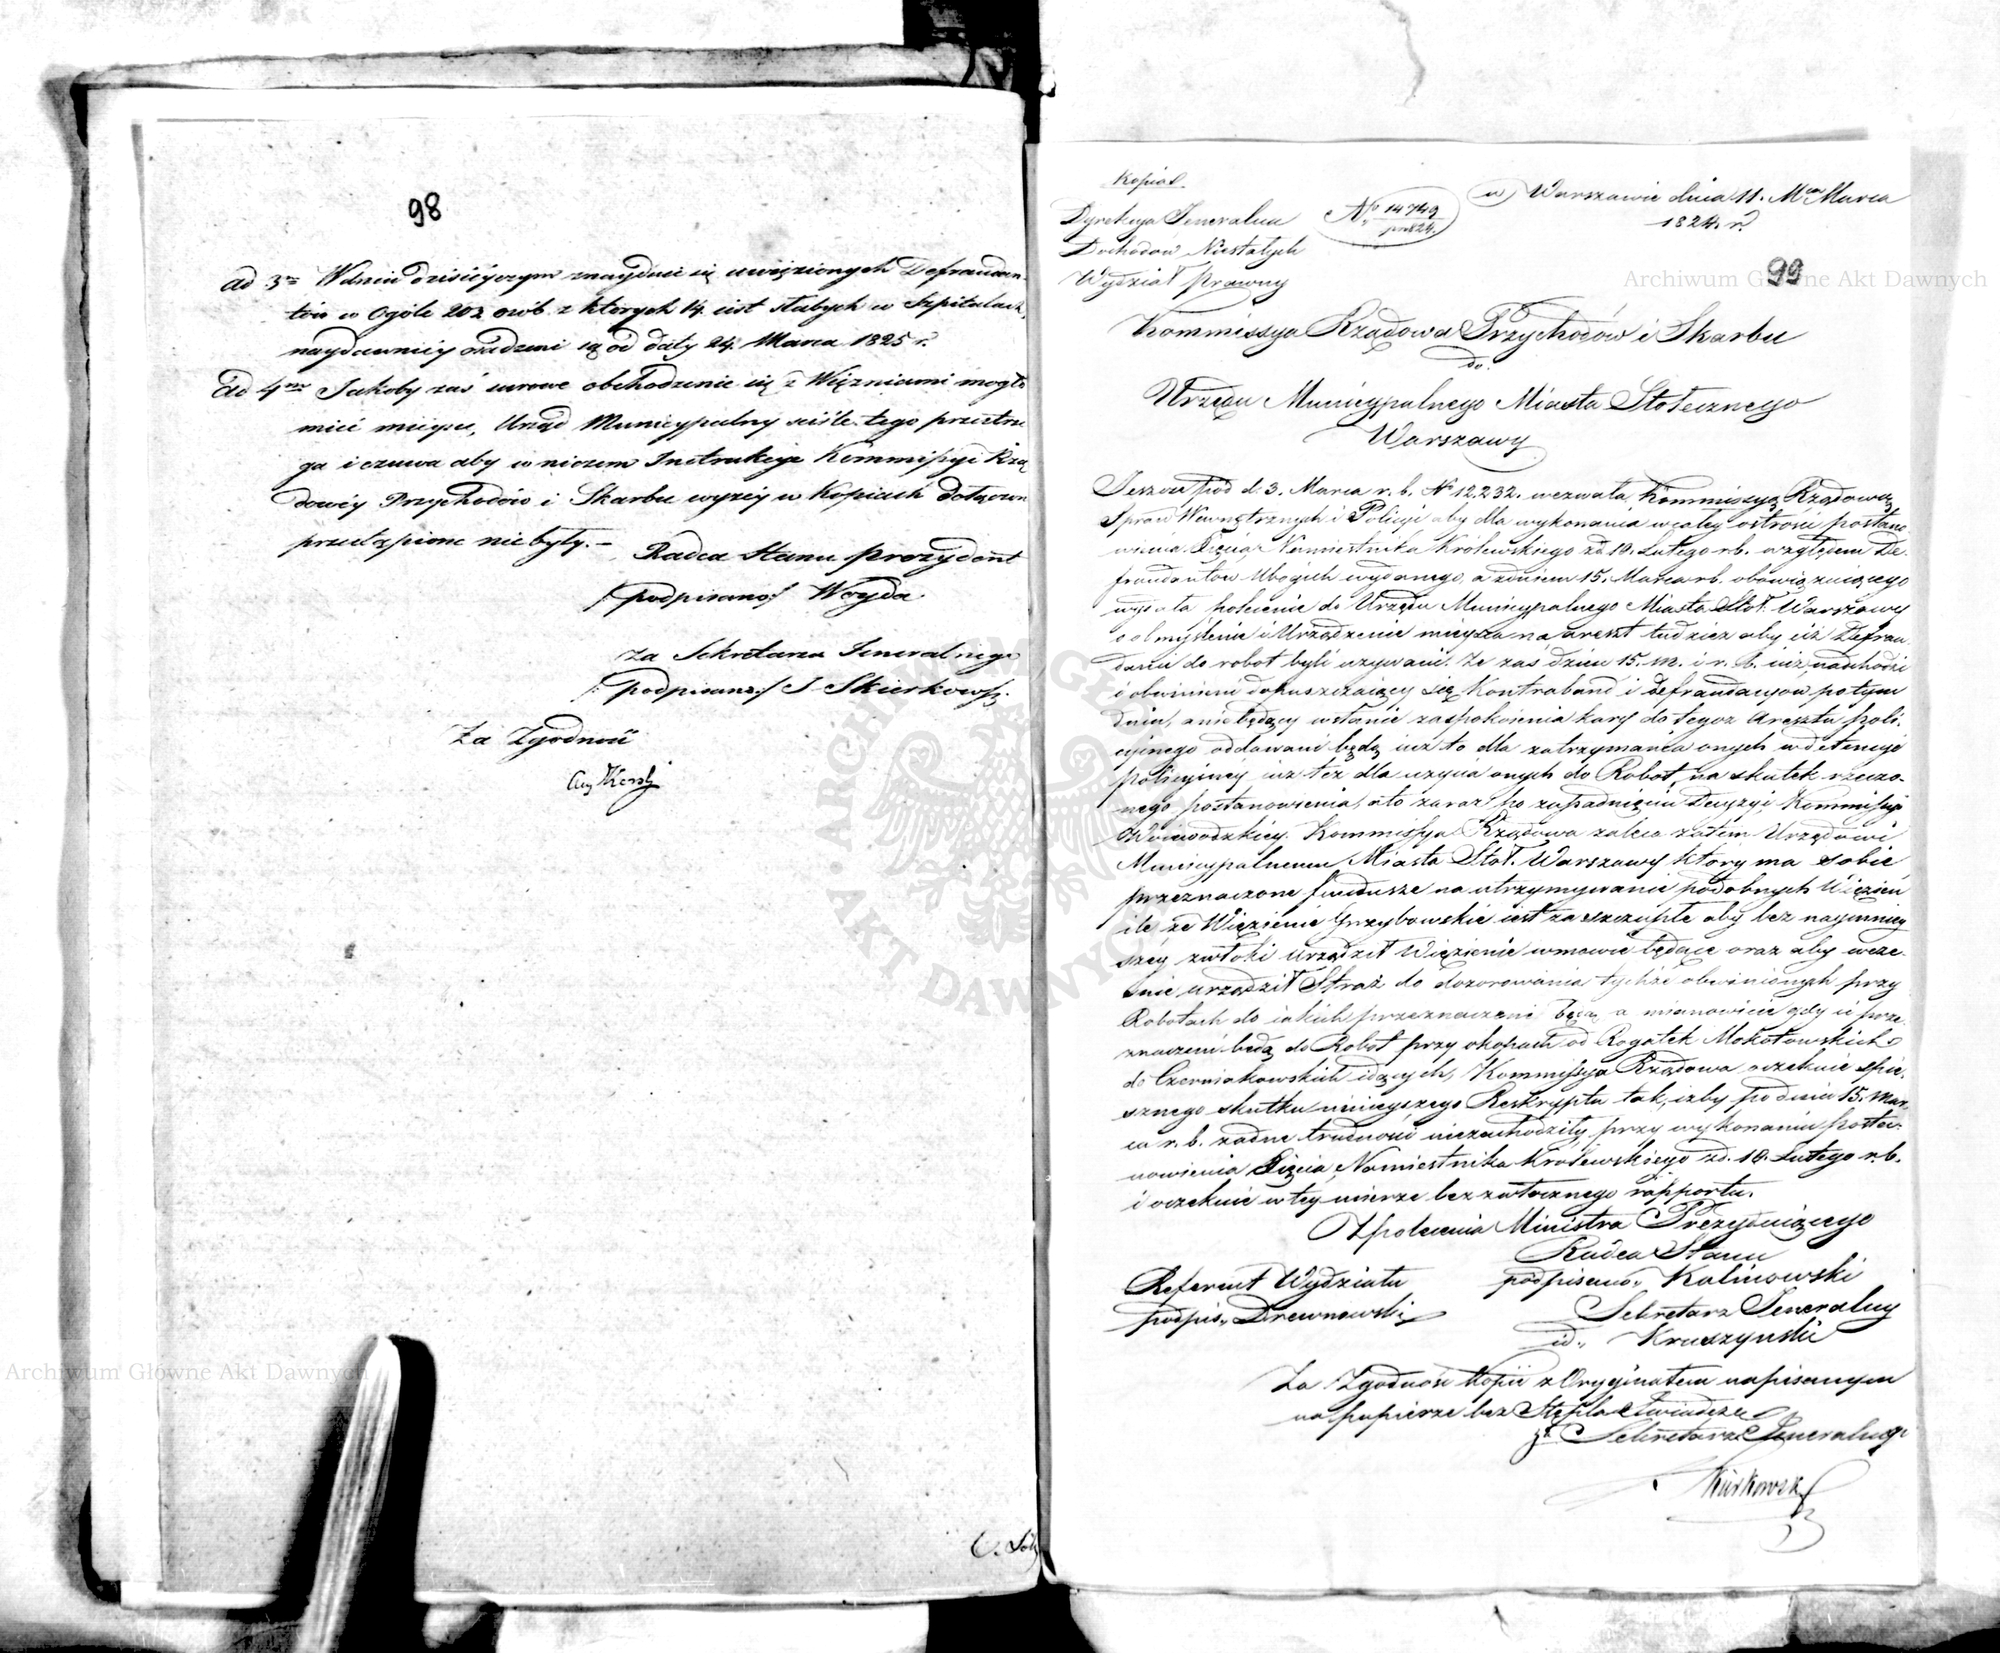 98
Ad 3m W dniu dzisieyszym znayduie się uwięzionych Defraudan-
tów w Ogóle 202 osób z których 14. iest słabych w Szpitalach,
naydawniey osadzeni są od daty 24. Marca 1825 r.
Ad 4m Jakoby zaś surowe obchodzenie się z Więźniami mogło
mieć mieysce, Urząd Municypalny ściśle tego przestrze
ga i czuwa aby w niczem Instrukcye Kommissyi Rzą
dowéy Przychodów i Skarbu wyżey w Kopiach dołączon
przestąpione nie były. –
Radca Stanu Prezydent
/podpisano/ Woyda
Za Sekretarza Jeneralnego
/:podpisano:/ J Skierkowski
Za Zgodność
C. Sob
Kopia.
Dyrekcya Jeneralna
Dochodów Niestałych
Wydział Prawny
No 14749
pro 824.
w Warszawie dnia 11. Mca Marca
1824. r.
99
Kommissya Rządowa Przychodów i Skarbu
do.
Urzędu Municypalnego Miasta Stołecznego
Warszawy
Jeszcze pod d. 3. Marca r. b. No 12,232. wezwała Kommissyą Rządową
Spraw Wewnętrznych i Policyi aby dla wykonania w całey ostrości postano
wienia Xięcia Namiestnika Królewskiego z d. 10. Lutego r b. względem De-
fraudantów Ubogich wydanego, a z dniem 15. Marca r b. obowiązuiącego
wydała polecenie do Urzędu Municypalnego Miasta Stoł. Warszawy
o obmyślenie i Urządzenie mieysca na areszt tudzież aby ciż Defrau
danci do robot byli używani. Ze zaś dzień 15. m. i r. b. iuż nadchodzi
i obwinieni dopuszczaiący się Kontraband i defraudacyow po tym
dniu, a nie będący w stanie zaspokoienia kary do tegoż Aresztu poli-
cyinego oddawani będą iuż to dla zatrzymania onych w detencyi
policyiney iuż też dla użycia onych do Robot, na skutek rzeczo-
nego postanowienia, a to zaraz po zapadnięciu Decyzyi Kommissyi
Woiewodzkiey. Kommissya Rządowa zaleca zatem Urzędowi
Municypalnemu Miasta Stoł. Warszawy który ma sobie
przeznaczone fundusze na utrzymywanie podobnych Więzień
ile że Więzienie Grzybowskie iest za szczupłe aby bez naymniey
szey zwłoki urządził Więzienie w mowie będące oraz aby wcze-
śnie urządził Straż do dozorowania tychże obwinionych przy
Robotach do iakich przeznaczeni będą a mianowicie gdy ci prze-
znaczeni będą do Robot przy okopach od Rogatek Mokotowskich
do Czerniakowskich idących, Kommissya Rządowa oczekuie spie-
sznego skutku ninieyszego Reskryptu tak, iżby po dniu 15. Mar-
ca r. b. żadne trudności niezachodziły przy wykonaniu posta-
nowienia Xięcia Namiestnika Królewskiego z d. 10. Lutego r. b.
i oczekuie w tey mierze bezzwłocznego rapportu.
Z polecenia Ministra Prezyduiącego
Radca Stanu
podpisano, Kalinowski
Referent Wydziału
podpis., Drewnowski
Sekretarz Jeneralny
id., Kruszyński
Za Zgodność Kopii z Oryginałem napisanym
na papierze bez Stępla Świadczę
za Sekretarza Jeneralnego
Skierkowski
Archiwum Główne Akt Dawnych
Archiwum Główne Akt Dawnych
ARCHIWUM GŁÓWNE AKT DAWNYCH